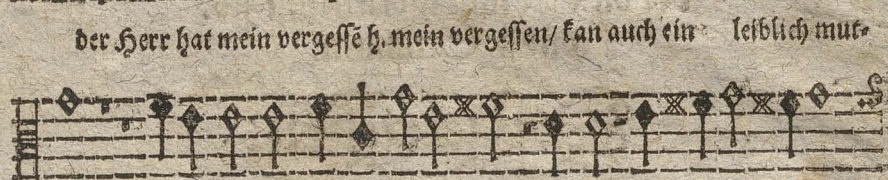 der Herr hat mein vergessē h. mein vergessen/ kan auch ein leiblich mut-